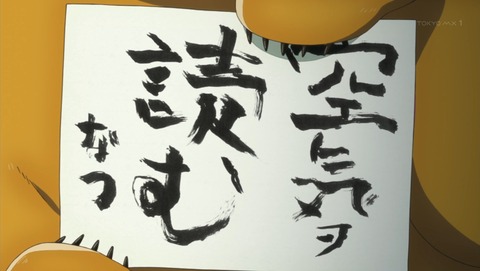 空気ヲ
読む
なつ
TOKYO MX 1